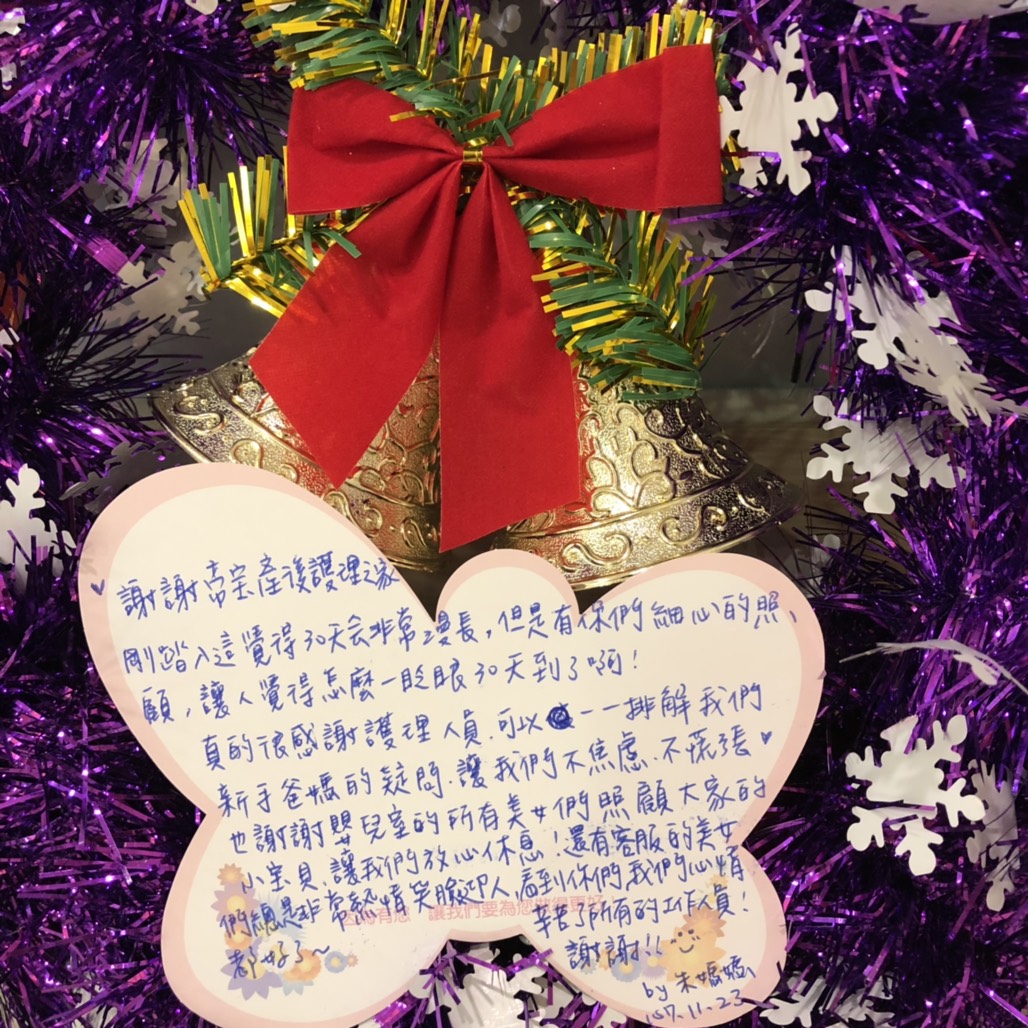 謝謝 產後護理之家
剛踏入這覺得30天会非常漫長，但是有你們細心的照、
顧，讓人覺得怎麼一眨眼30天到了啊！
真的很感謝護理人員.可以 一一排解我們
新手爸媽的疑問.讓我們不焦慮.不慌張♥
也謝謝嬰兒室的所有美女們照顧大家的
小宝貝.讓我們放心休息！還有客服的美女
們總是非常熱情笑臉迎人,看到你們,我們心情
都好了~
辛苦了所有的工作人員！
謝謝!!
by 朱媽媽
107.11.23
有您 讓我們要為您做得更好